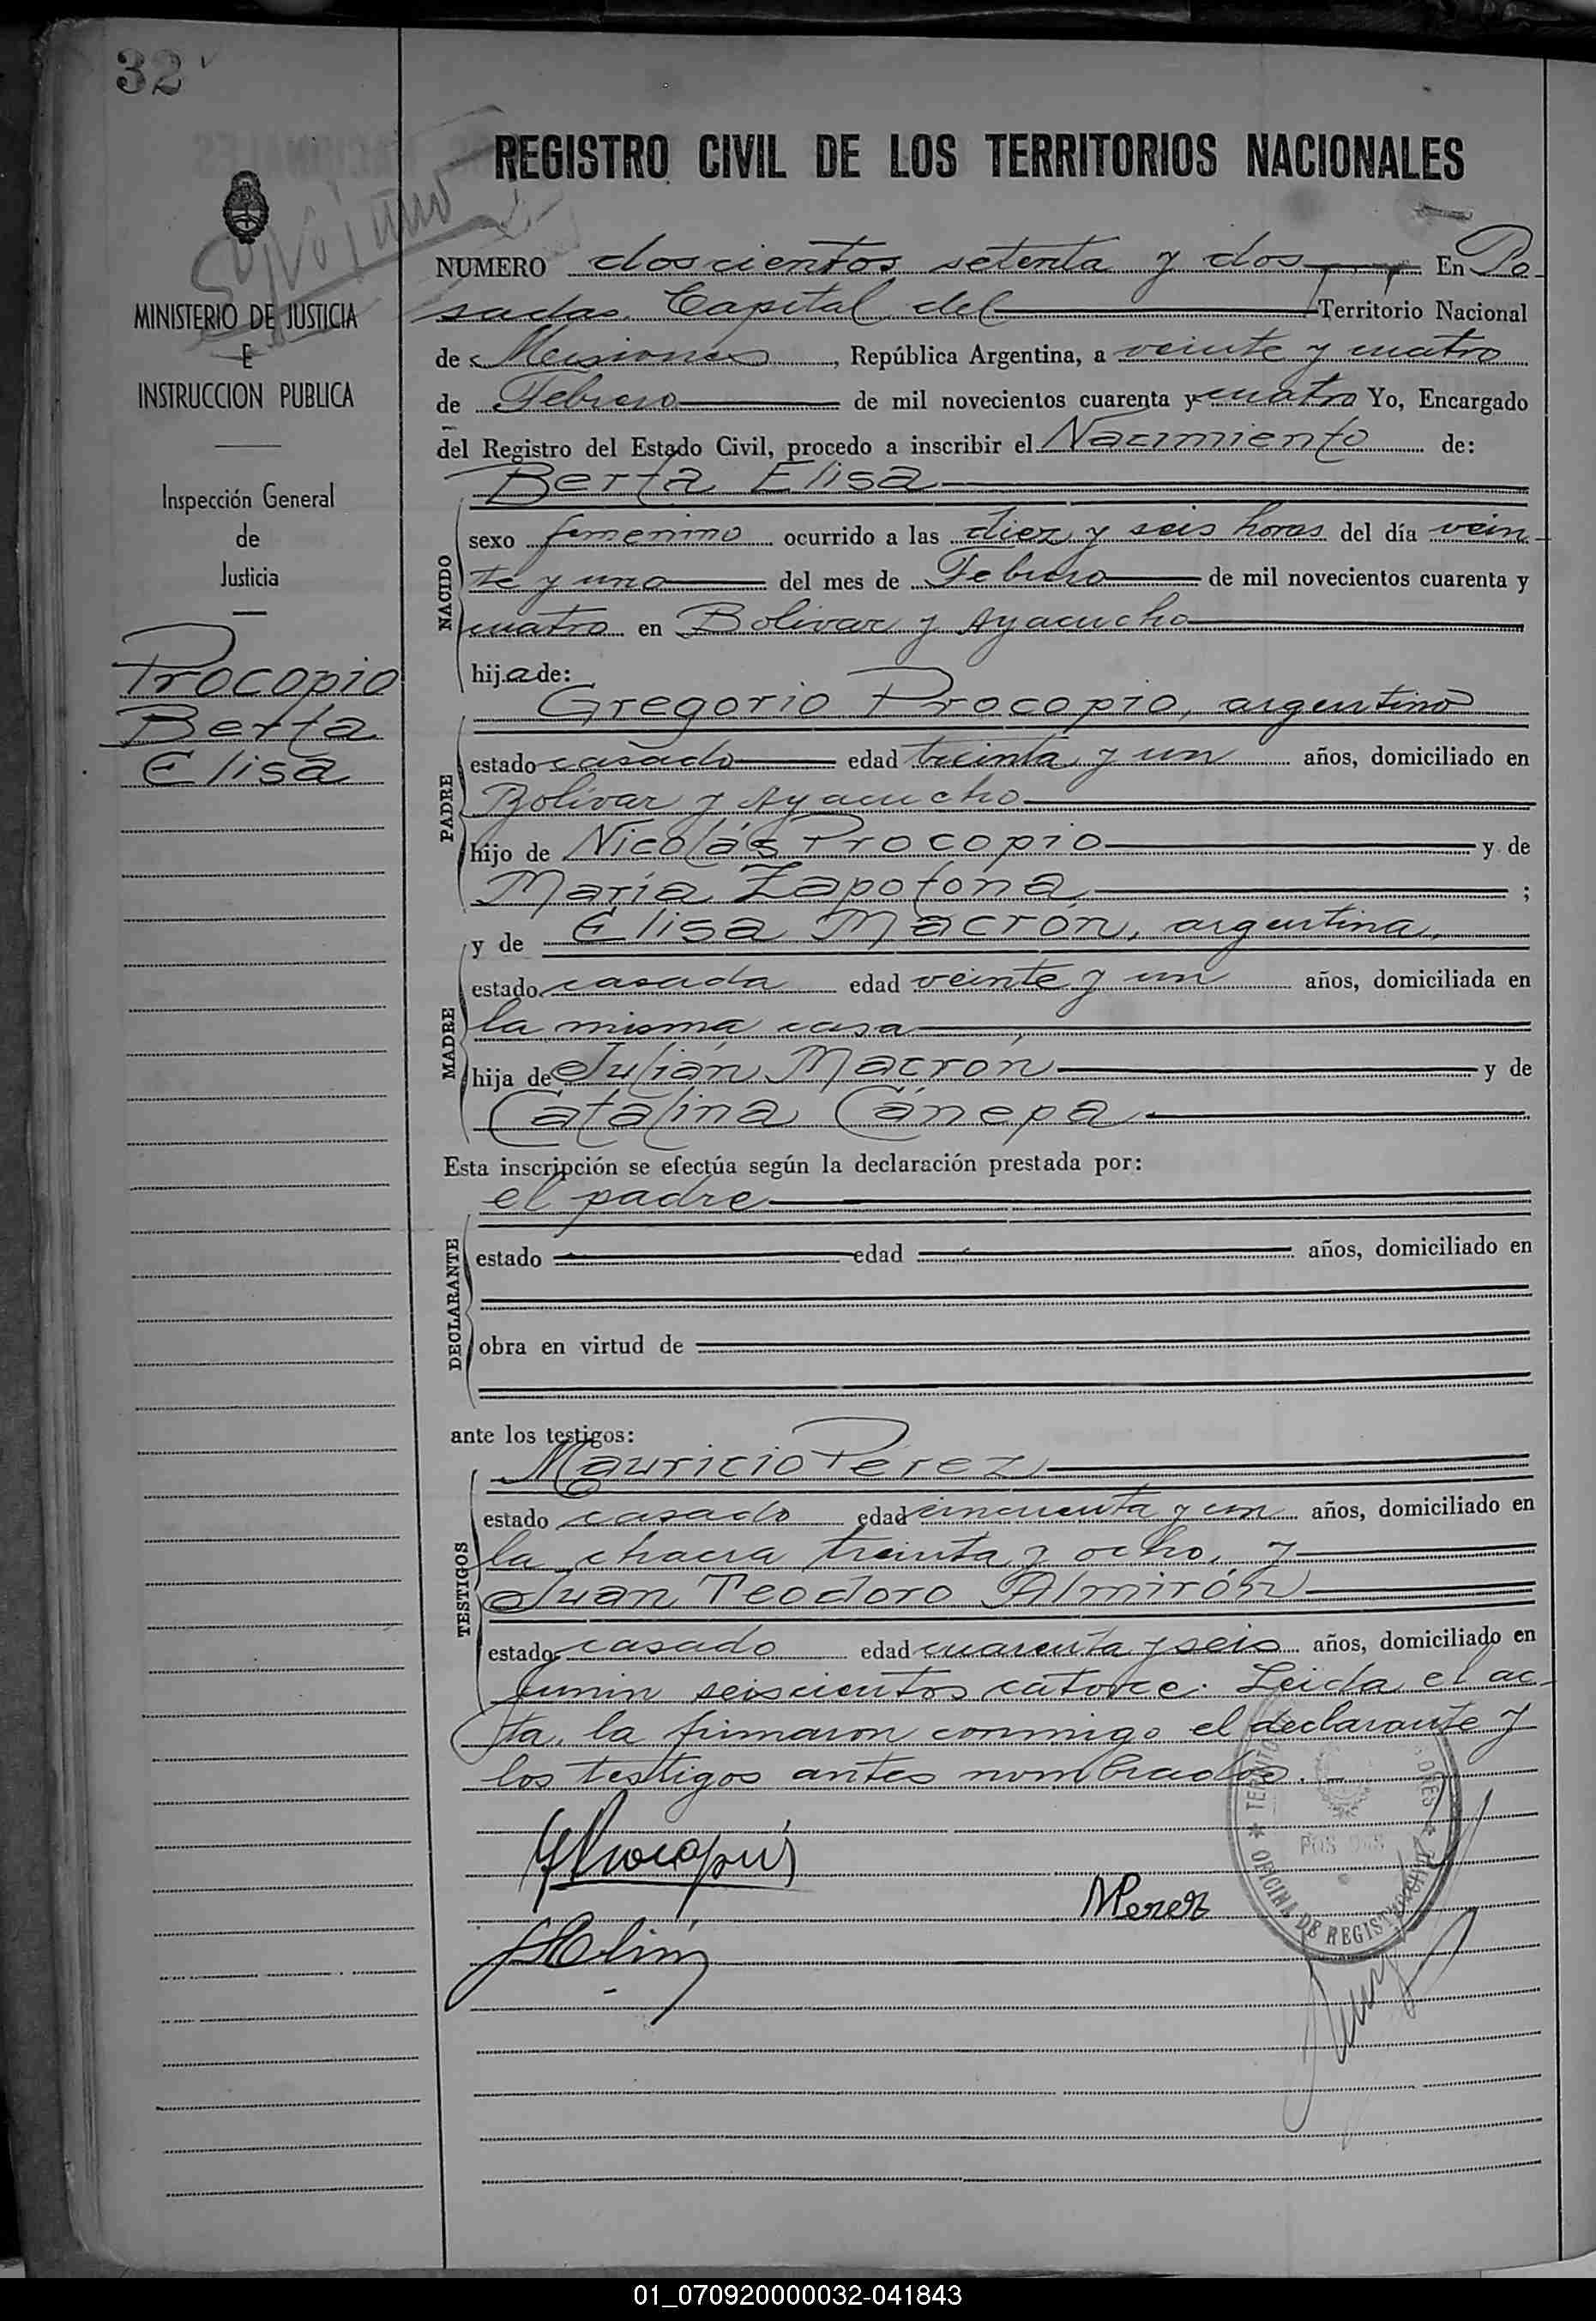 32
REGISTRO CIVIL DE LOS TERRITORIOS NACIONALES
MINISTERIO DE JUSTICIA
E
INSTRUCCION PUBLICA
Inspección General
de
Justicia
Procopio
Berta
Elisa
NUMERO doscientos setenta y dos En Po-
sadas Capital del Territorio Nacional
de Misiones, República Argentina, a veinte y cuatro
de Febrero de mil novecientos cuarenta y cuatro Yo, Encargado
del Registro del Estado Civil, procedo a inscribir el Nacimiento de:
Berta Elisa
NACIDO
sexo femenino ocurrido a las diez y seis horas del día vein-
te y uno del mes de Febrero de mil novecientos cuarenta y
cuatro en Bolívar y Ayacucho
hija de:
Gregorio Procopio, argentino
PADRE
estado casado edad treinta y un años, domiciliado en
Bolívar y Ayacucho
hijo de Nicolás Procopio y de
María Zapotona ;
y de Elisa Macrón, argentina,
MADRE
estado casada edad veinte y un años, domiciliada en
la misma casa
hija de Julián Macrón y de
Catalina Cánepa
Esta inscripción se efectúa según la declaración prestada por:
el padre
DECLARANTE
estado edad años, domiciliado en
obra en virtud de
ante los testigos:
Mauricio Pérez
TESTIGOS
estado casado edad cincuenta y un años, domiciliado en
la chacra treinta y ocho, y
Juan Teodoro Almirón
estado casado edad cuarenta y seis años, domiciliado en
Junín seiscientos catorce. Leida el ac-
ta, la firmaron conmigo el declarante y
los testigos antes nombrados.
MPerez
OFICINA DE REGISTRO CIVIL
01_070920000032-041843